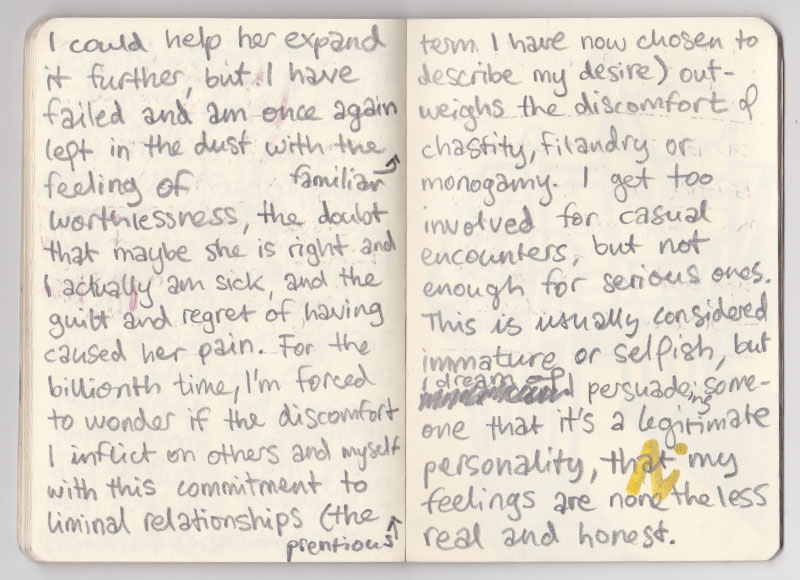 I could help her expand
it further, but I have
failed and am once again
left in the dust with the
familiar
feeling of
worthlessness, the doubt
that maybe she is right and
I actually am sick, and the
guilt and regret of having
caused her pain. For the
billionth time, I'm forced
to wonder if the discomfort
I inflict on others and myself
with this commitment to
liminal relationships (the
prentious
term I have now chosen to
describe my desire) out-
weighs the discomfort of
chastity, filandry or
monogamy. I get too
involved for casual
encounters, but not
enough for serious ones.
This is usually considered
immature or selfish, but
I dream of
persuade ing some-
one that it's a legitimate
personality, that my
feelings are nonetheless
real and honest.